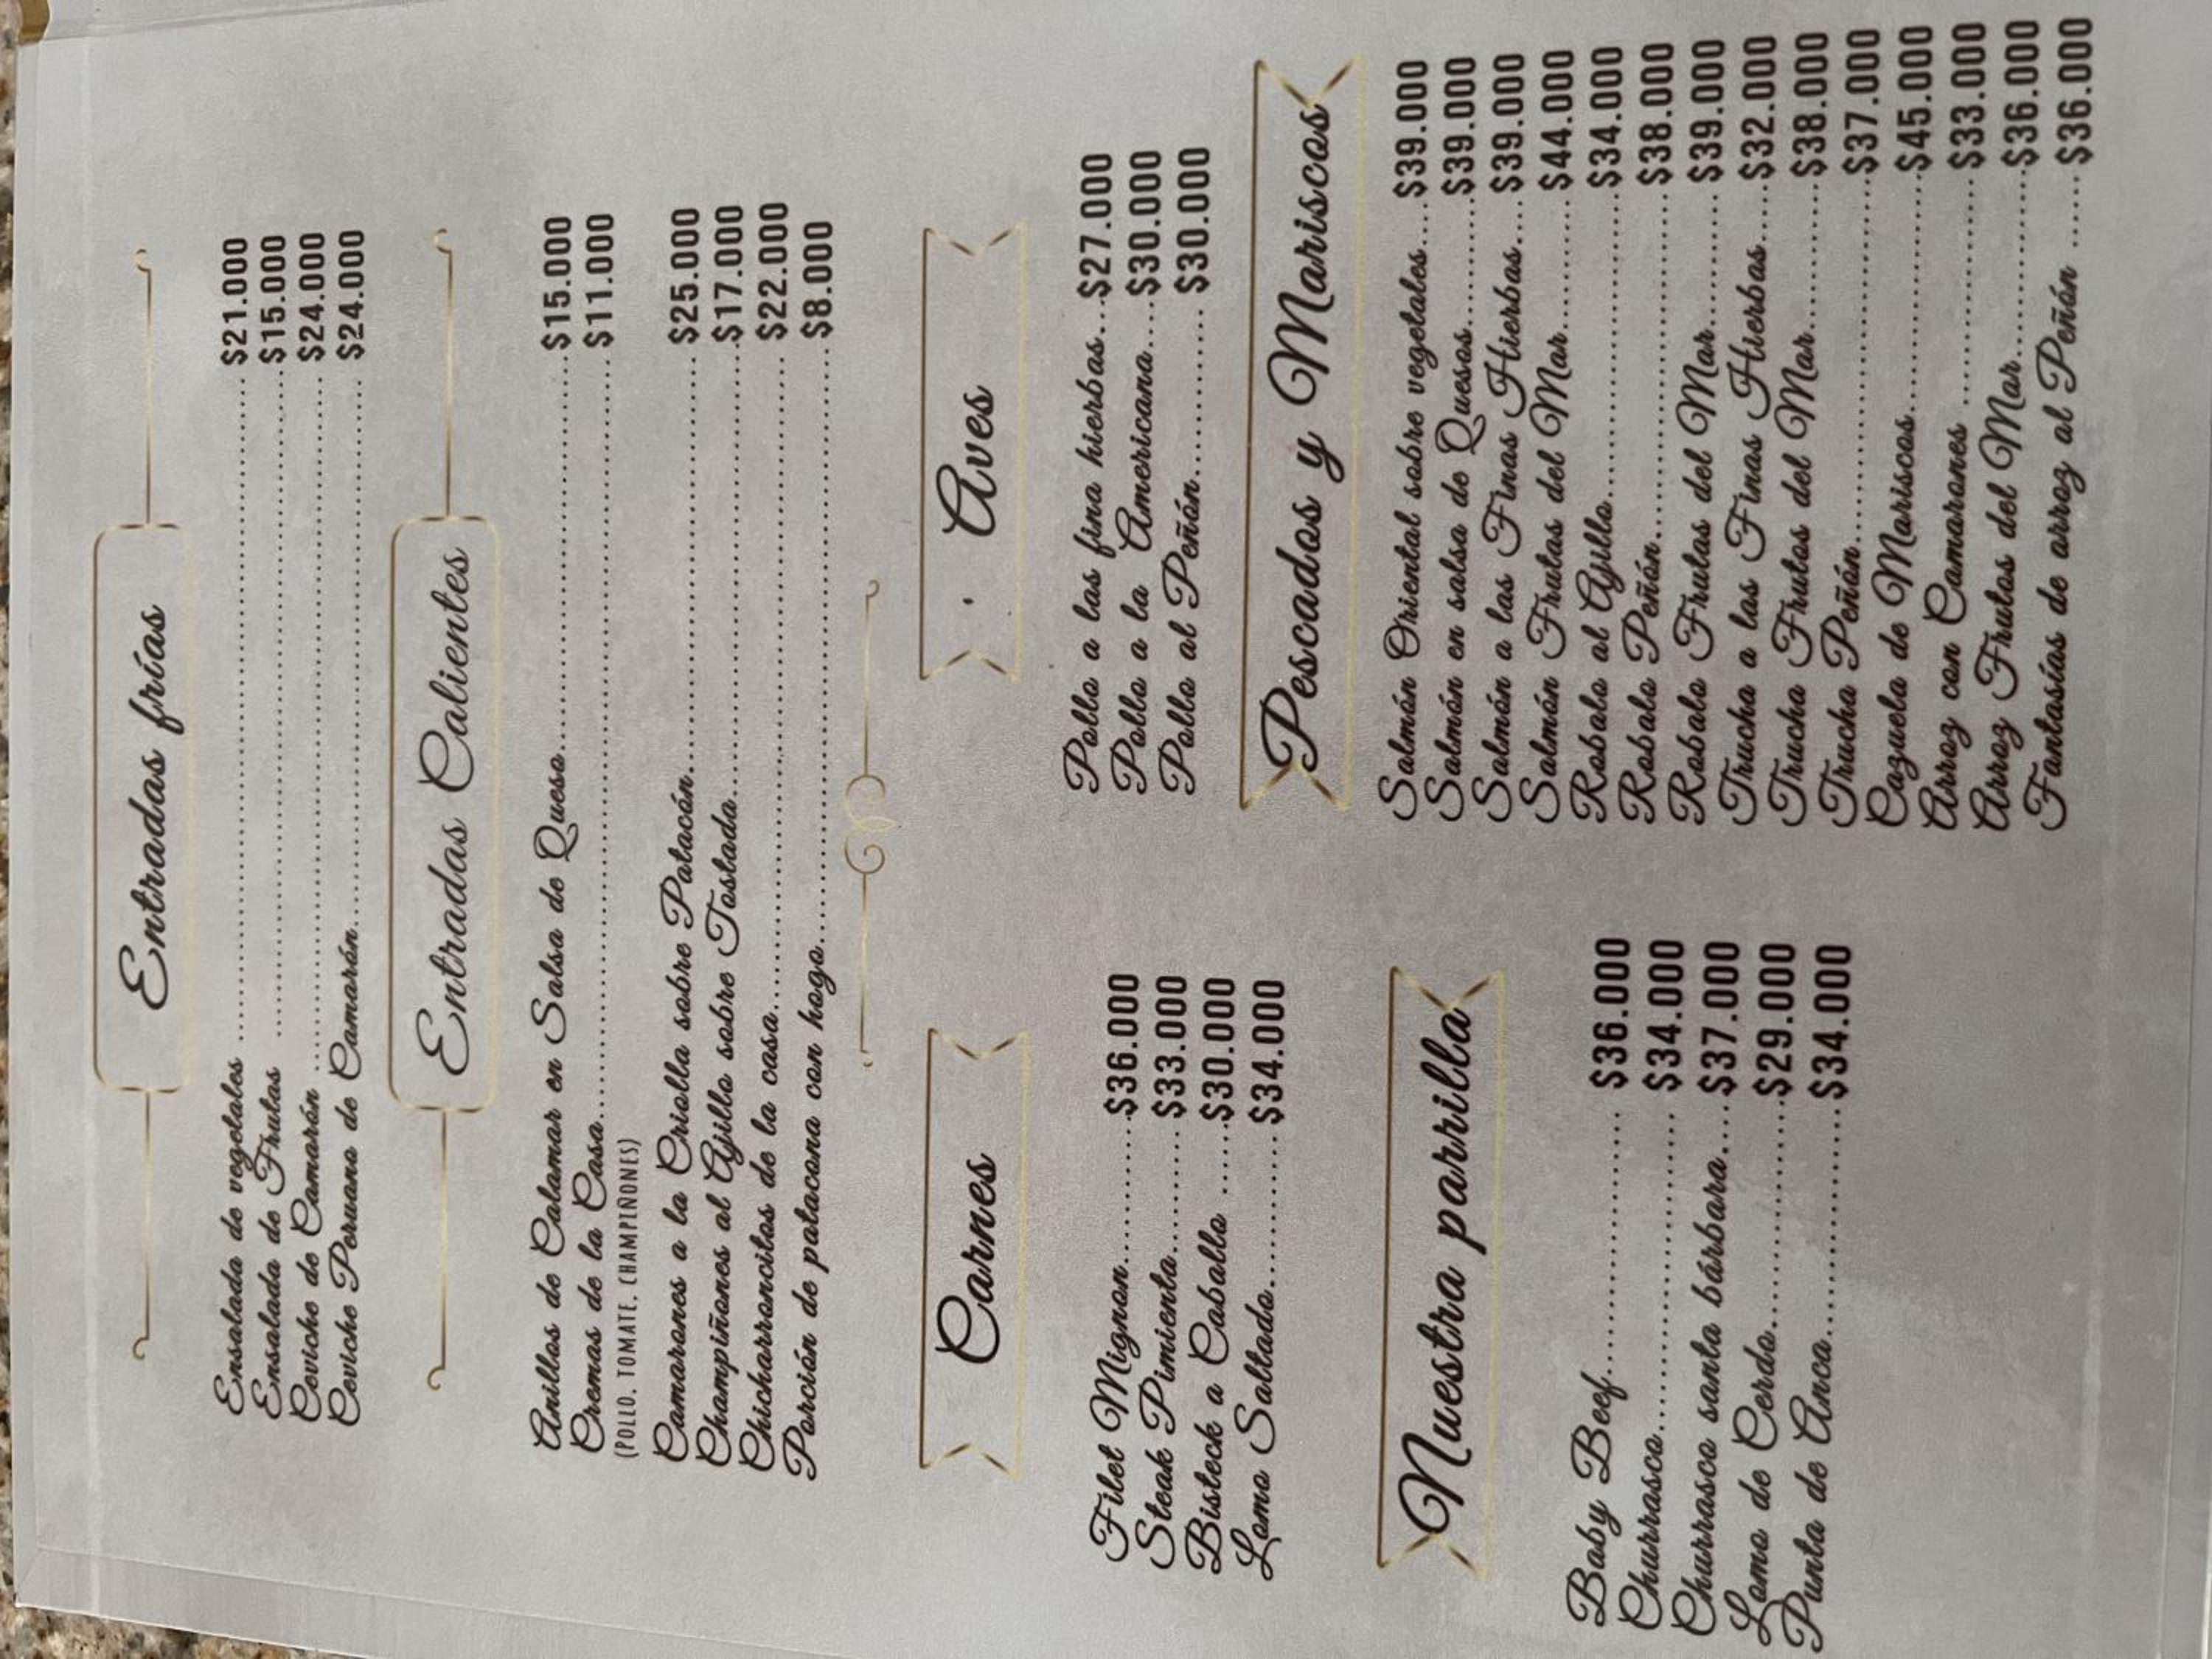 Entradas frías
Ensalada de vegetales ........ $21.000
Ensalada de Frutas ........ $15.000
Ceviche de Camarón ........ $24.000
Ceviche Peruano de Camarón ........ $24.000
Entradas Calientes
Anillos de Calamar en Salsa de Queso ........ $15.000
Cremas de la Casa ........ $11.000
(POLLO, TOMATE, CHAMPIÑONES)
Camarones a la Criolla sobre Patacón ........ $25.000
Champiñones al Ajillo sobre Tostada ........ $17.000
Chicharroncitos de la casa ........ $22.000
Porción de patacona con hogo ........ $8.000
Carnes
Filet Mignon ........ $36.000
Steak Pimienta ........ $33.000
Bisteck a Caballo ........ $30.000
Lomo Saltado ........ $34.000
Nuestra parrilla
Baby Beef ........ $36.000
Churrasco ........ $34.000
Churrasco santa bárbara .... $37.000
Lomo de Cerdo ........ $29.000
Punta de Anca ........ $34.000
Aves
Pollo a las fina hierbas ... $27.000
Pollo a la Americana .... $30.000
Pollo al Peñón ........ $30.000
Pescados y Mariscos
Salmón Oriental sobre vegetales .... $39.000
Salmón en salsa de Quesos ........ $39.000
Salmón a las Finas Hierbas .... $39.000
Salmón Frutos del Mar ........ $44.000
Robalo al Ajillo ........ $34.000
Robalo Peñón ........ $38.000
Robalo Frutos del Mar ........ $39.000
Trucha a las Finas Hierbas ..... $32.000
Trucha Frutos del Mar ........ $38.000
Trucha Peñón ........ $37.000
Cazuela de Mariscos ........ $45.000
Arroz con Camarones ........ $33.000
Arroz Frutos del Mar ........ $36.000
Fantasías de arroz al Peñón ...... $36.000